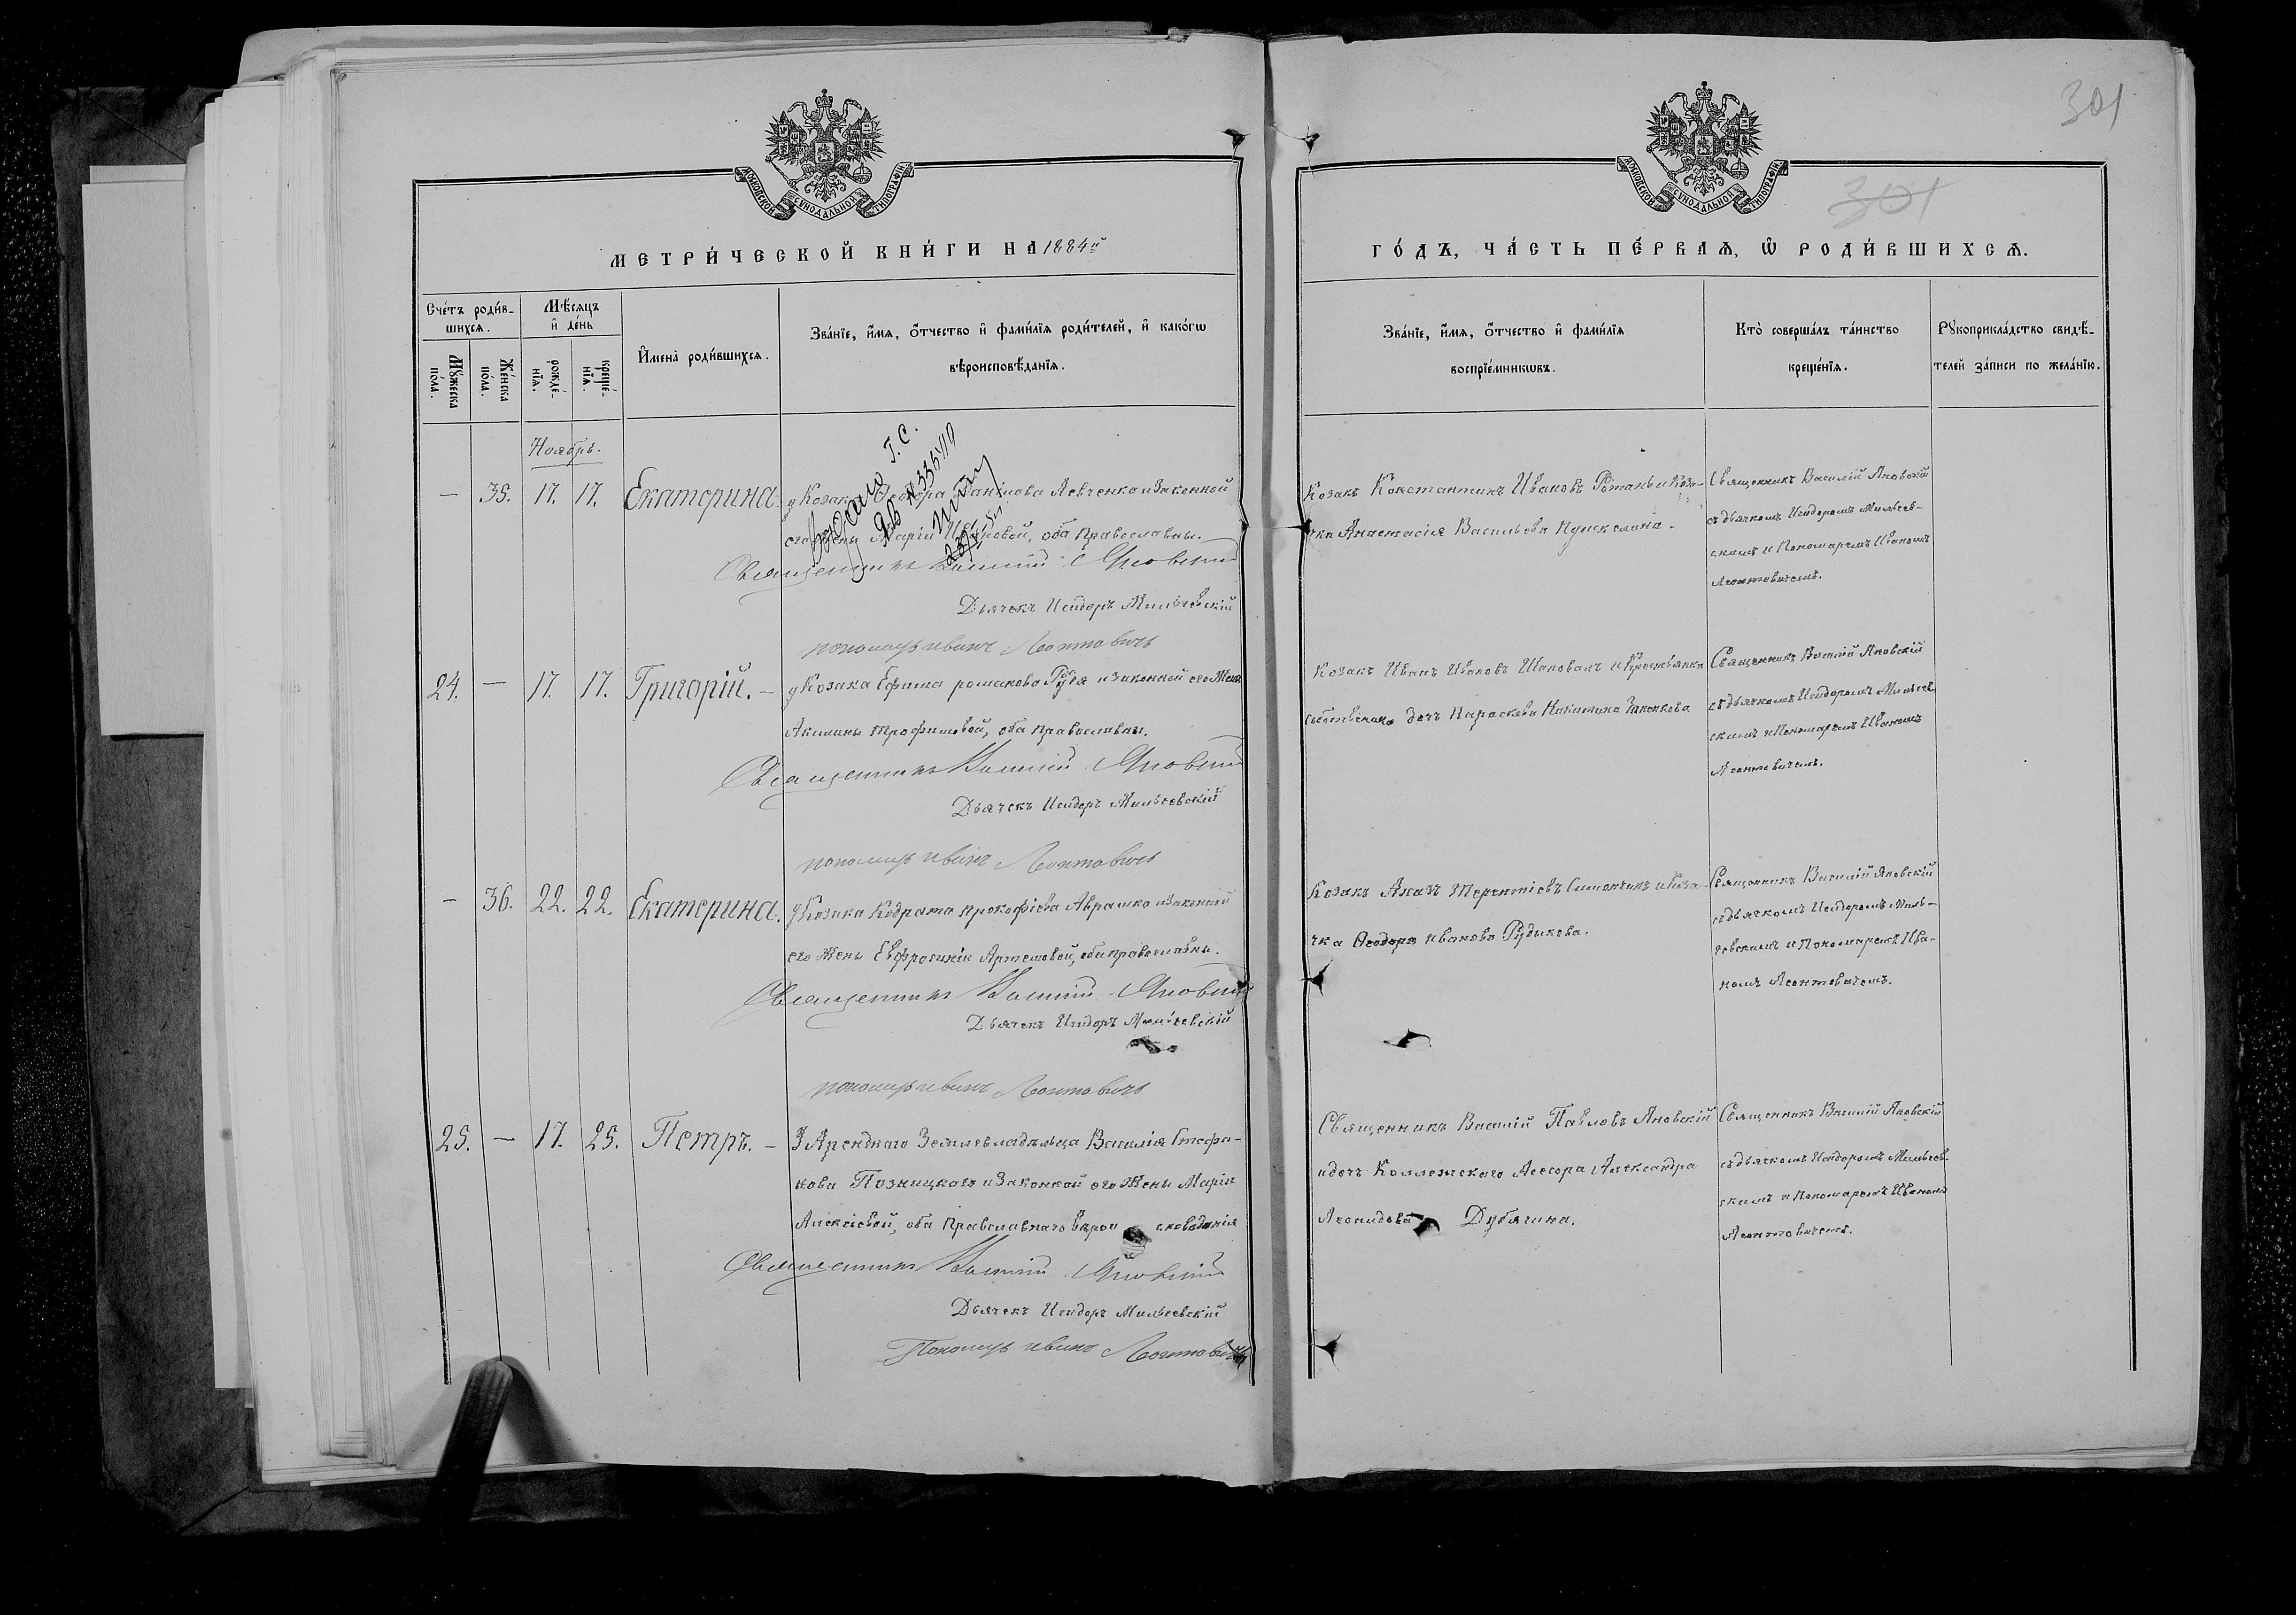 301
301
МОСКОВСКОЙ СѴНОДАЛЬНОЙ ТИПОГРАФІИ
МОСКОВСКОЙ СѴНОДАЛЬНОЙ ТИПОГРАФІИ
МЕТРИ́ЧЕСКОЙ КНИ́ГИ НА 1884й
ГО́ДЪ, ЧА́СТЬ ПЕ́РВАѦ, Ѡ҆ РОДИ́ВШИХСѦ.
Сче́тъ роди́в-
шихсѧ.
Мꙋ́жеска по́ла.
Же́нска по́ла.
Мѣ́сѧцъ и҆ де́нь
рожде́-нїѧ.
креще́-нїѧ.
И҆мена̀ роди́вшихсѧ.
Зва́нїе, и҆́мѧ, ѻ҆́тчество и҆ фами́лїѧ роди́телей, и҆ како́гѡ
вѣроисповѣ́данїѧ.
Зва́нїе, и҆́мѧ, ѻ҆́тчество и҆ фами́лїѧ
воспрїе́мникѡвъ.
Кто̀ соверша́лъ та́инство
креще́нїѧ.
Рꙋкоприкла́дство свидѣ́-
телей за́писи по жела́нїю.
Ноябрь.
— 35. 17. 17. Екатерина. у Козака Ѳеодора Левченка и законной
его жены Маріи Ивановой, оба православны.
Священникъ Василій Яновскій
Дьячекъ Исидоръ Мильгевскій
пономарь иванъ Леонтовичъ
Козакъ Константинъ Ивановъ и Коза-
чка Анастасія Васильева
Священникъ Василій Яновскій
съ дьячкомъ Исидоромъ Мильгев-
скимъ и Пономаремъ Иваномъ
Леонтовичемъ.
24. — 17. 17. Григорій. — у Козака Ефима романова и законной его Жены
Акилины трофимовой, оба православны.
Священникъ Василій Яновскій
Дьячекъ Исидоръ Мильгевскій
пономарь иванъ Леонтовичъ
Козакъ Иванъ Ивановъ Шаповалъ и Крестьянки
дочъ Параскева Никитина
Священникъ Василій Яновскій
съ дьячкомъ Исидоромъ Мильгев
скимъ и Пономаремъ Иваномъ
Леонтовичемъ.
— 36. 22. 22. Екатерина. у Козака Кодрата прокофіева Аврашка и законной
его Жены Евфросиніи Артемовой, оба православны.
Священникъ Василій Яновскій
Дьячекъ Исидоръ Мильгевскій
пономарь иванъ Леонтовичъ
Козакъ терентіевъ Симончикъ и Коза-
чка Ѳеодора иванова Рудикова.
Священникъ Василій Яновскій
съ дьячкомъ Исидоромъ Миль-
гевскимъ и Пономаремъ Ива-
номъ Леонтовичемъ.
25. — 17. 25. Петръ. — У Землевладѣльца Василія Стефа-
нова Позницкаго и Законной его Жены Маріи
Алексіевой, оба православнаго вѣроисповѣданія
Священникъ Василій Яновскій
Дьячекъ Исидоръ Мильгевскій
Пономарь иванъ Леонтовичъ
Священникъ Василій Павловъ Яновскій
и дочъ Коллежскаго Асесора Александра
Леонидова Дубягина.
Священникъ Василій Яновскій
съ дьячкомъ Исидоромъ Мильгев-
скимъ и Пономаремъ Иваномъ
Леонтовичемъ.